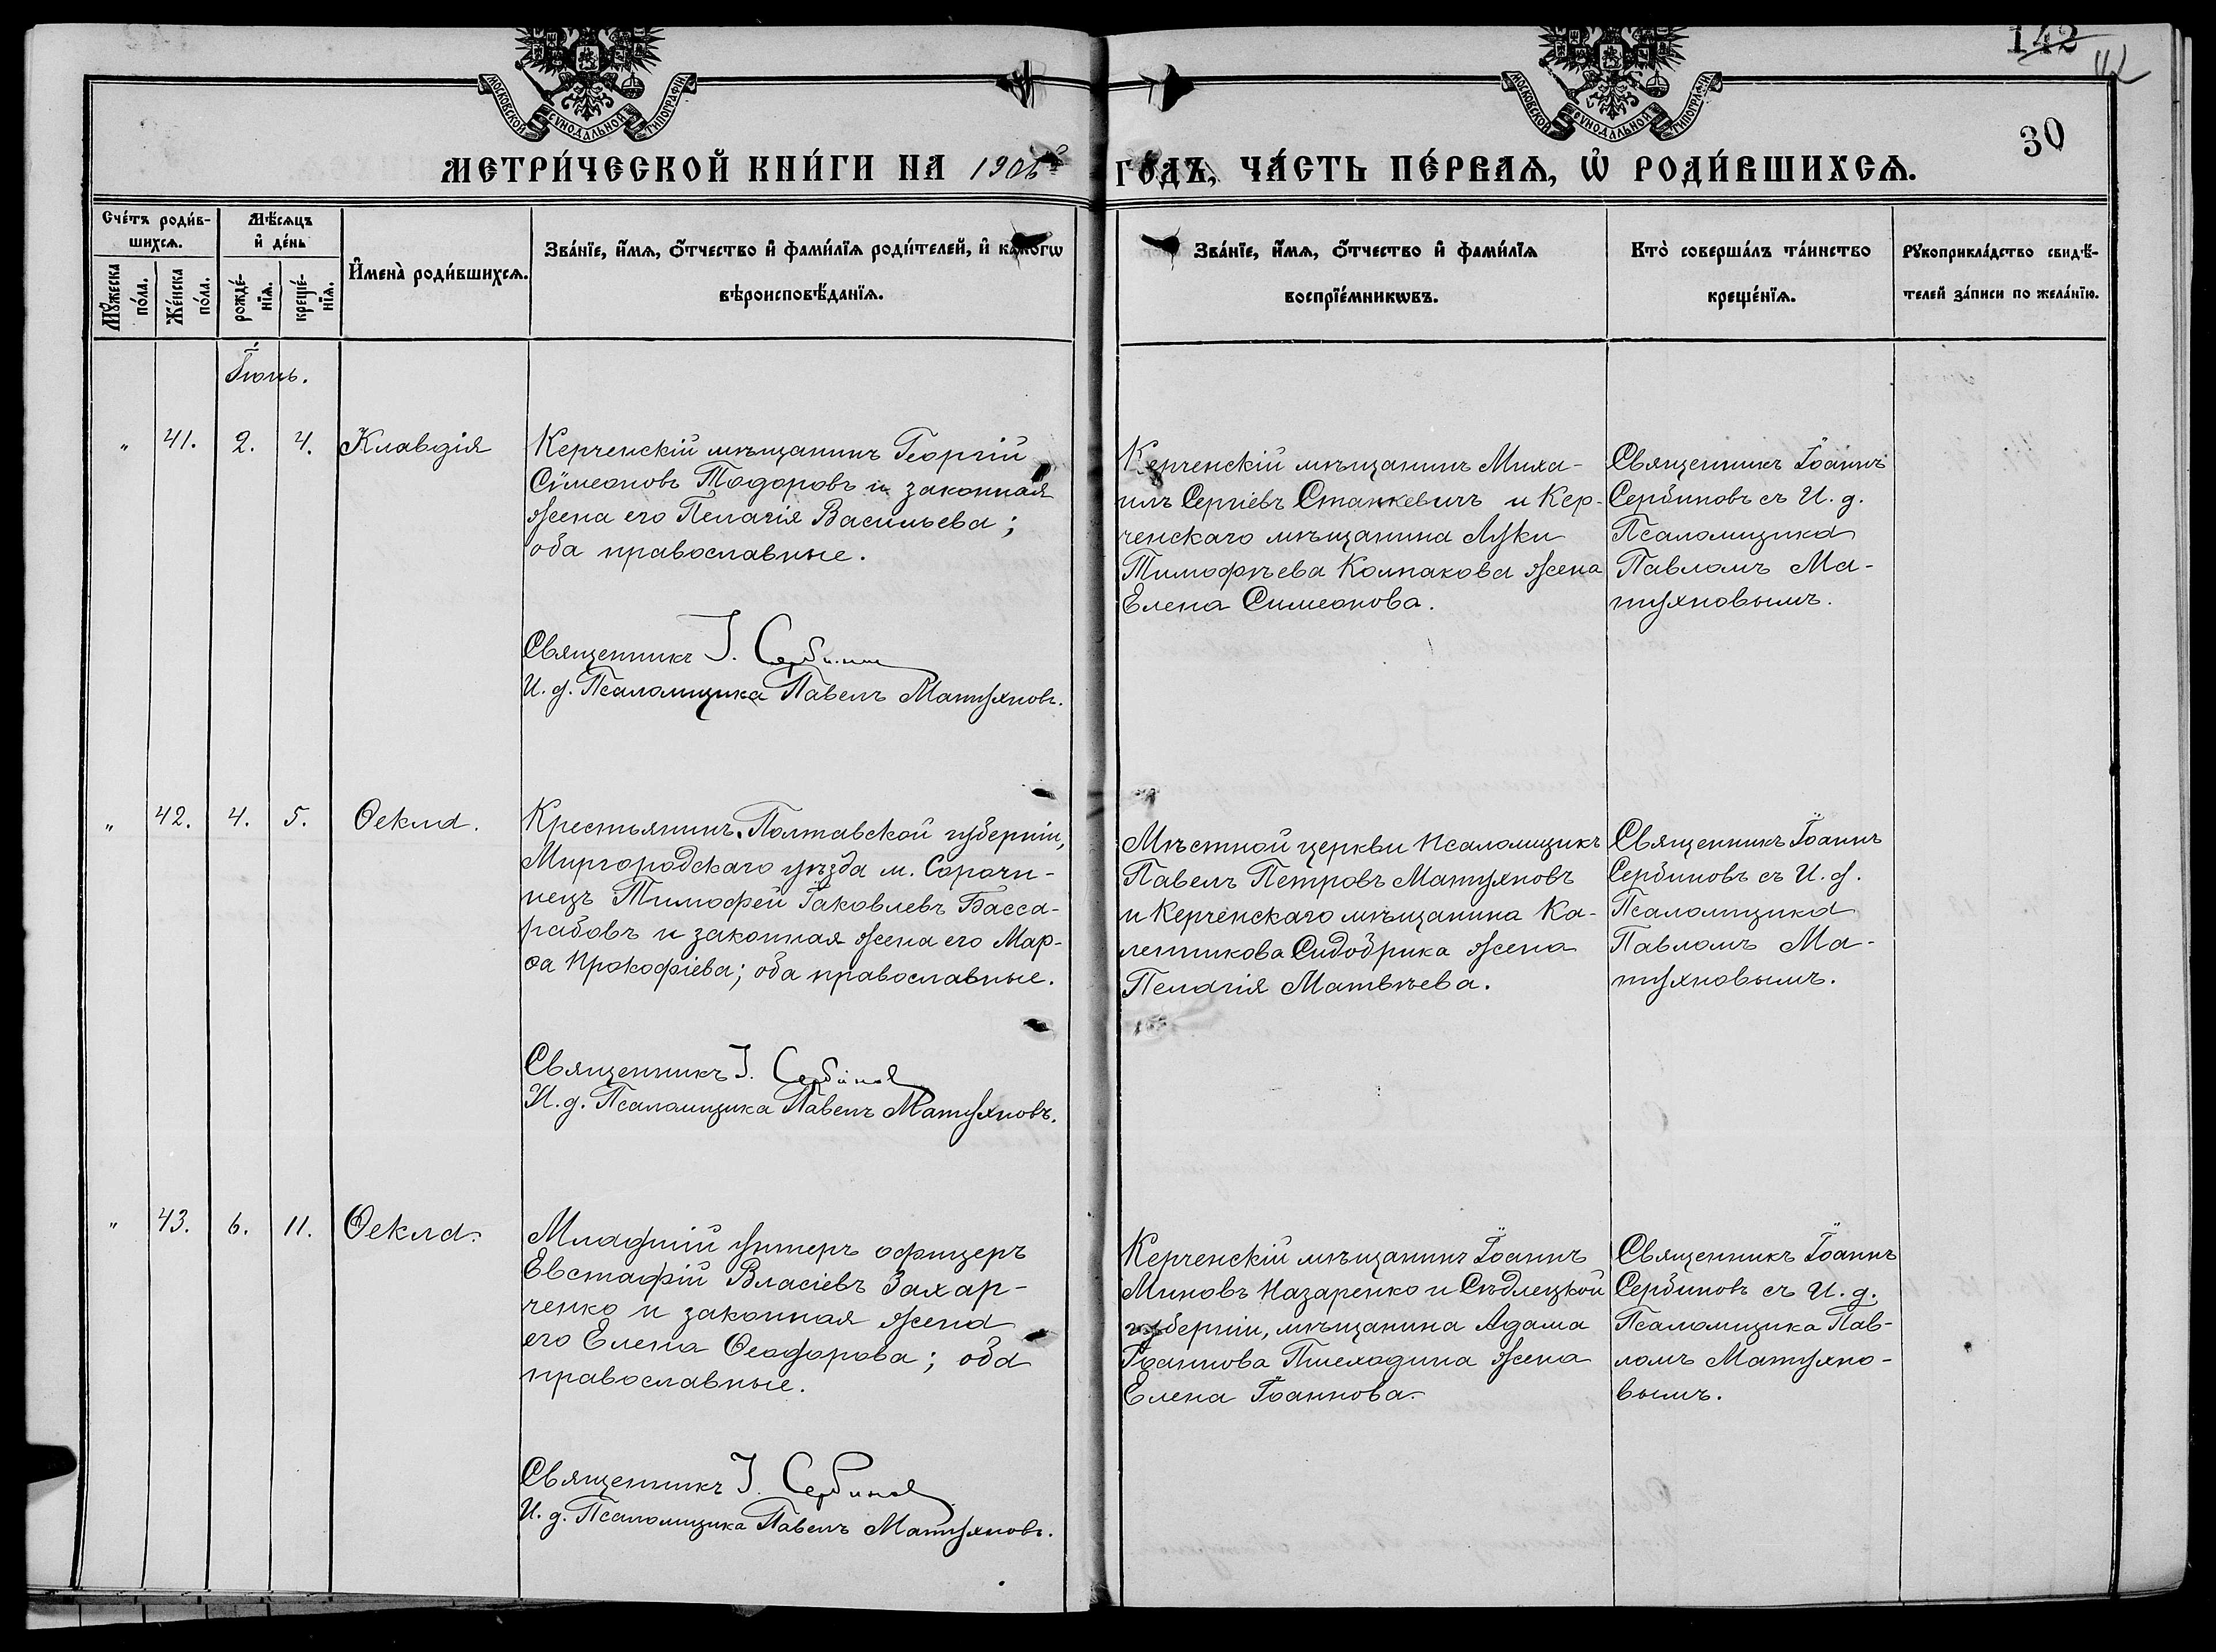 142
112
30
МОСКОВСКОЙ СѴНОДАЛЬНОЙ ТИПОГРАФІИ
МОСКОВСКОЙ СѴНОДАЛЬНОЙ ТИПОГРАФІИ
МЕТРИ́ЧЕСКОЙ КНИ́ГИ НА 1906й ГО́ДЪ, ЧА́СТЬ ПЕ́РВАѦ, Ѡ҆ РОДИ́ВШИХСѦ.
Сче́тъ роди́в-
шихсѧ.
Мꙋ́жеска по́ла.
Же́нска по́ла.
Мѣ́сѧцъ
и҆ де́нь
рожде́-нїѧ.
креще́-нїѧ.
И҆мена̀ роди́вшихсѧ.
Зва́нїе, и҆́мѧ, ѻ҆́тчество и҆ фами́лїѧ роди́телей, и҆ како́гѡ
вѣроисповѣ́данїѧ.
Зва́нїе, и҆́мѧ, ѻ҆́тчество и҆ фами́лїѧ
воспрїе́мникѡвъ.
Кто̀ соверша́лъ та́инство
креще́нїѧ.
Рꙋкоприкла́дство свидѣ́-
телей за́писи по жела́нїю.
Іюнь.
" 41. 2. 4. Клавдія
Керченскій мѣщанинъ Георгій
Сѵмеоновъ Тодоровъ и законная
жена его Пелагія Васильева;
оба православные.
Священникъ І. Сербиновъ
И. д. Псаломщика Павелъ Матухновъ.
Керченскій мѣщанинъ Миха-
илъ Сергіевъ Станкевичъ и Кер-
ченскаго мѣщанина Луки
Тимофѣева Колпакова жена
Елена Симеонова.
Священникъ Іоаннъ
Сербиновъ съ И. д.
Псаломщика
Павломъ Ма-
тухновымъ.
" 42. 4. 5. Ѳекла.
Крестьянинъ Полтавской губерніи,
Миргородскаго уѣзда м. Сорочи-
нецъ Тимофей Іаковлевъ Басса-
рабовъ и законная жена его Мар-
ѳа Прокофіева; оба православные.
Священникъ І. Сербиновъ
И. д. Псаломщика Павелъ Матухновъ.
Мѣстной церкви псаломщикъ
Павелъ Петровъ Матухновъ
и Керченскаго мѣщанина Ка-
ленникова Сидобрика жена
Пелагія Матвѣева.
Священникъ Іоаннъ
Сербиновъ съ И. д.
Псаломщика
Павломъ Ма-
тухновымъ.
" 43. 6. 11. Ѳекла.
Младшій унтеръ офицеръ
Евстафій Власіевъ Захар-
ченко и законная жена
его Елена Ѳеодорова; оба
православные.
Священникъ І. Сербиновъ
И. д. Псаломщика Павелъ Матухновъ.
Керченскій мѣщанинъ Іоаннъ
Миновъ Назаренко и Сѣдлецкой
губерніи, мѣщанина Адама
Іоаннова Пшеходина жена
Елена Іоаннова.
Священникъ Іоаннъ
Сербиновъ съ И. д.
Псаломщика Пав-
ломъ Матухно-
вымъ.